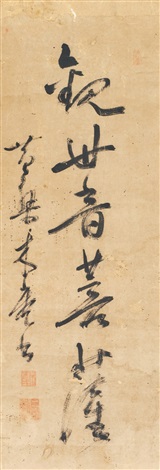 觀世音菩薩
黄檗木菴書